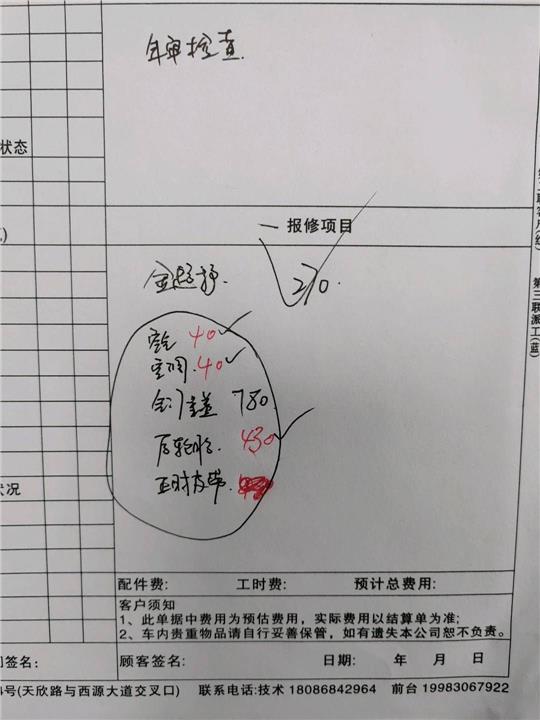 年审检查
状态
报修项目
270.
空气 40
空调 40
780
后轮胎 430
正时皮带
状况
第三联派工(蓝)
配件费: 工时费: 预计总费用:
客户须知
1、此单据中费用为预估费用，实际费用以结算单为准;
2、车内贵重物品请自行妥善保管，如有遗失本公司恕不负责。
签名: 顾客签名: 日期: 年 月 日
4号(天欣路与西源大道交叉口) 联系电话:技术 18086842964 前台 19983067922